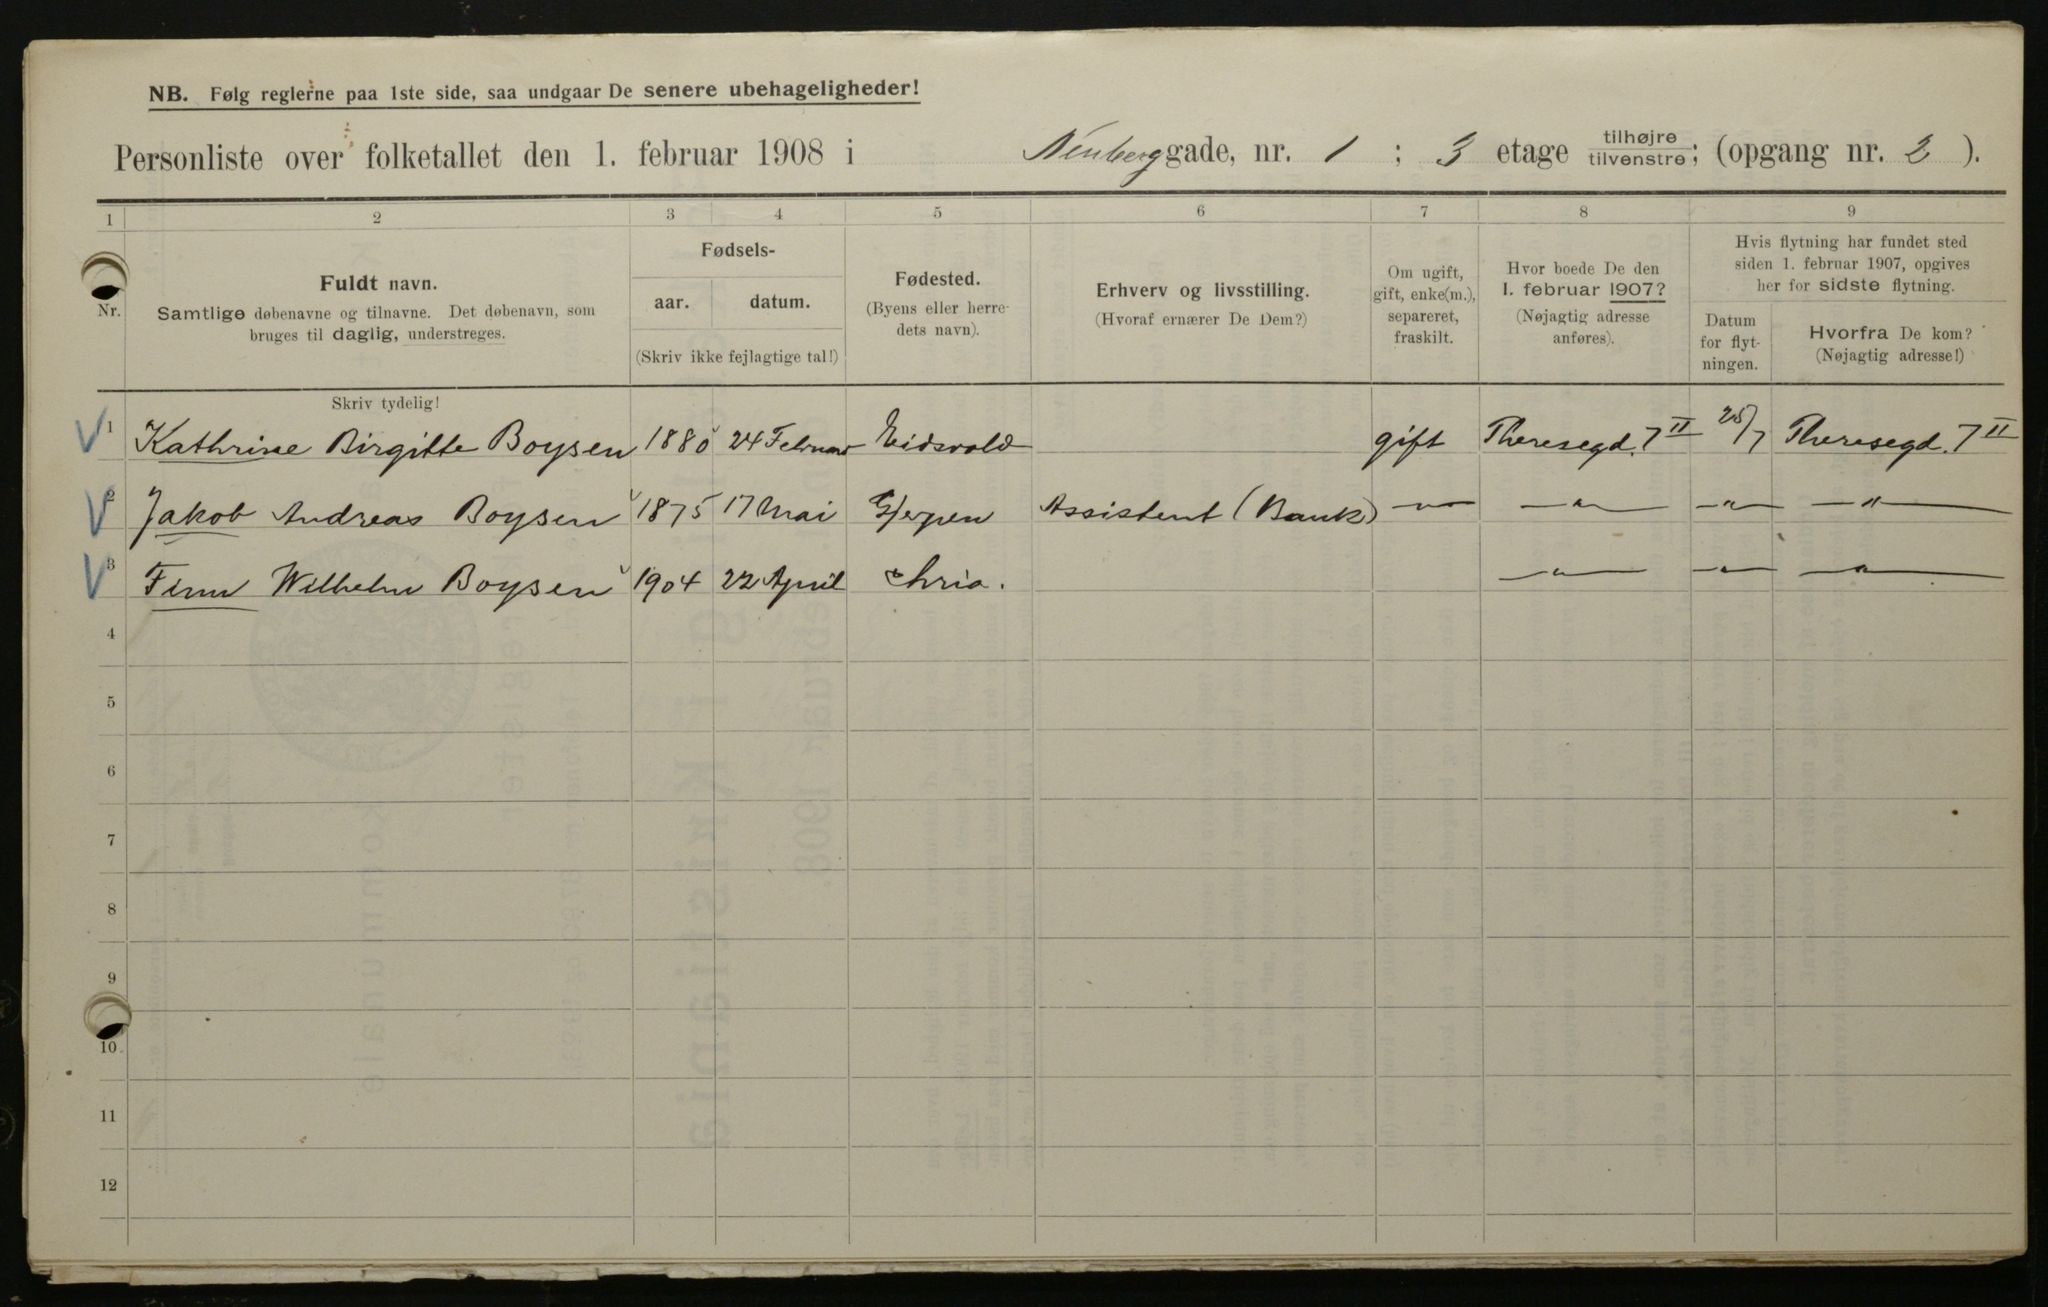 NB. Følg reglerne paa 1ste side, saa undgaar De senere ubehageligheder!
Personliste over folketallet den 1. februar 1908 i Neuberggade, nr. 1 ; 3 etage tilhøjre/tilvenstre; (opgang nr. 2 ).
1 2 3 4 5 6 7 8 9
Nr.
Fuldt navn.
Samtlige døbenavne og tilnavne. Det døbenavn, som
bruges til daglig, understreges.
Fødsels-
aar. datum.
(Skriv ikke fejlagtige tal!)
Fødested.
(Byens eller herre-
dets navn).
Erhverv og livsstilling.
(Hvoraf ernærer De Dem?)
Om ugift,
gift, enke(m.),
separeret,
fraskilt.
Hvor boede De den
1. februar 1907?
(Nøjagtig adresse
anføres).
Hvis flytning har fundet sted
siden 1. februar 1907, opgives
her for sidste flytning.
Datum
for flyt-
ningen.
Hvorfra De kom?
(Nøjagtig adresse!)
Skriv tydelig!
1 Kathrine Birgitte Boysen 1880 24 Februar Eidsvold gift Theresegd. 7 II /7 Theresegd. 7 II
2 Jakob Andreas Boysen 1875 17 Mai Gjerpen Assistent (Bank) —"— —"— —"— —"—
3 Finn Wilhelm Boysen 1904 22 April Chria. —"— —"— —"—
4
5
6
7
8
9
10
11
12